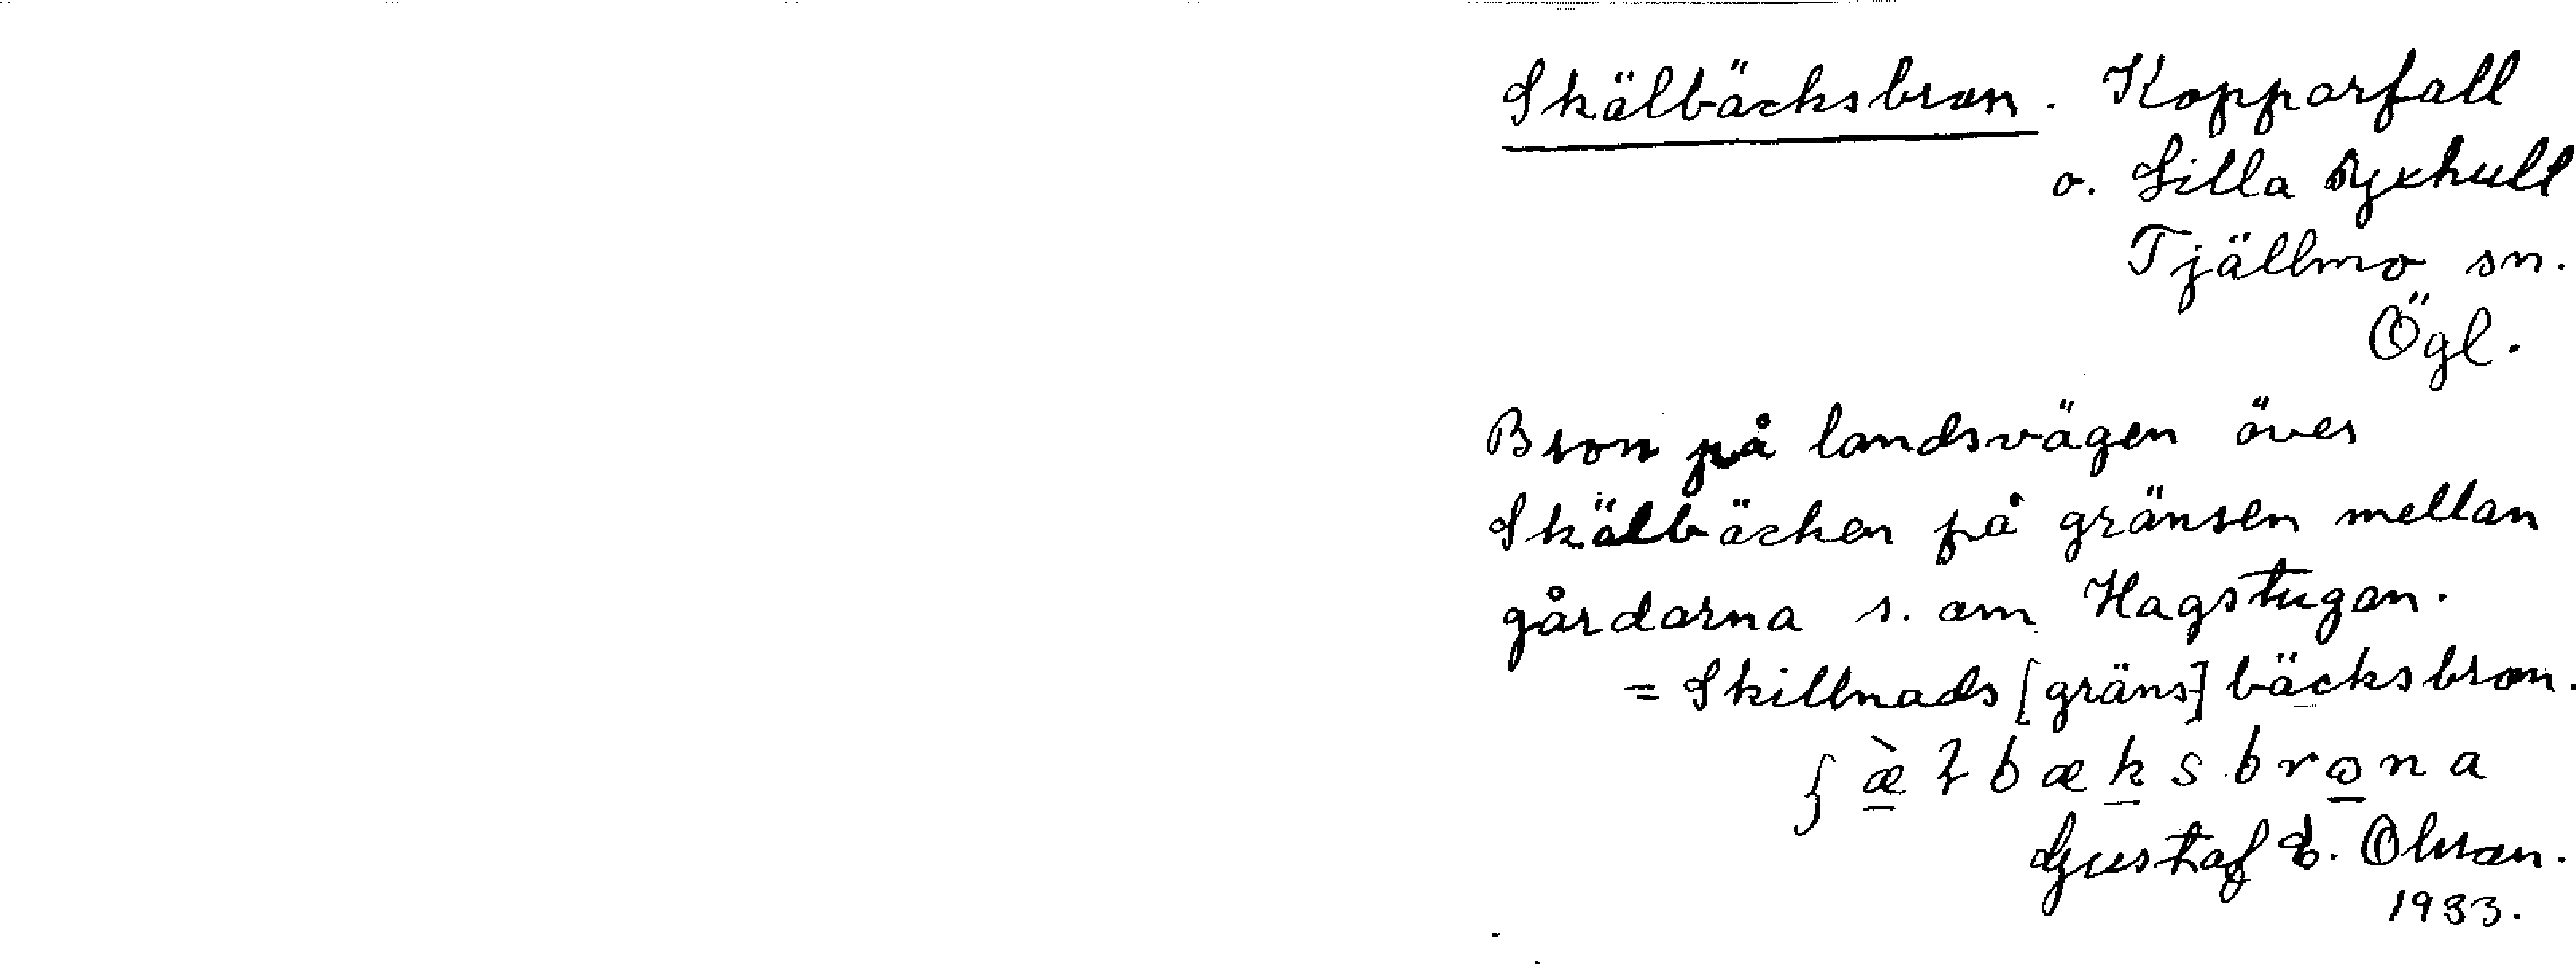 Skälbäcksbron. Kopparfall
o. Lilla Ryckhult
Tjällmo sn.
Ögl.
Bron på landsvägen över
Skälbäcken på gränsen mellan
gårdarna s. om Hagstugan.
= Skillnads [gräns] bäcksbron.
Gustaf E. Olsson.
1933.